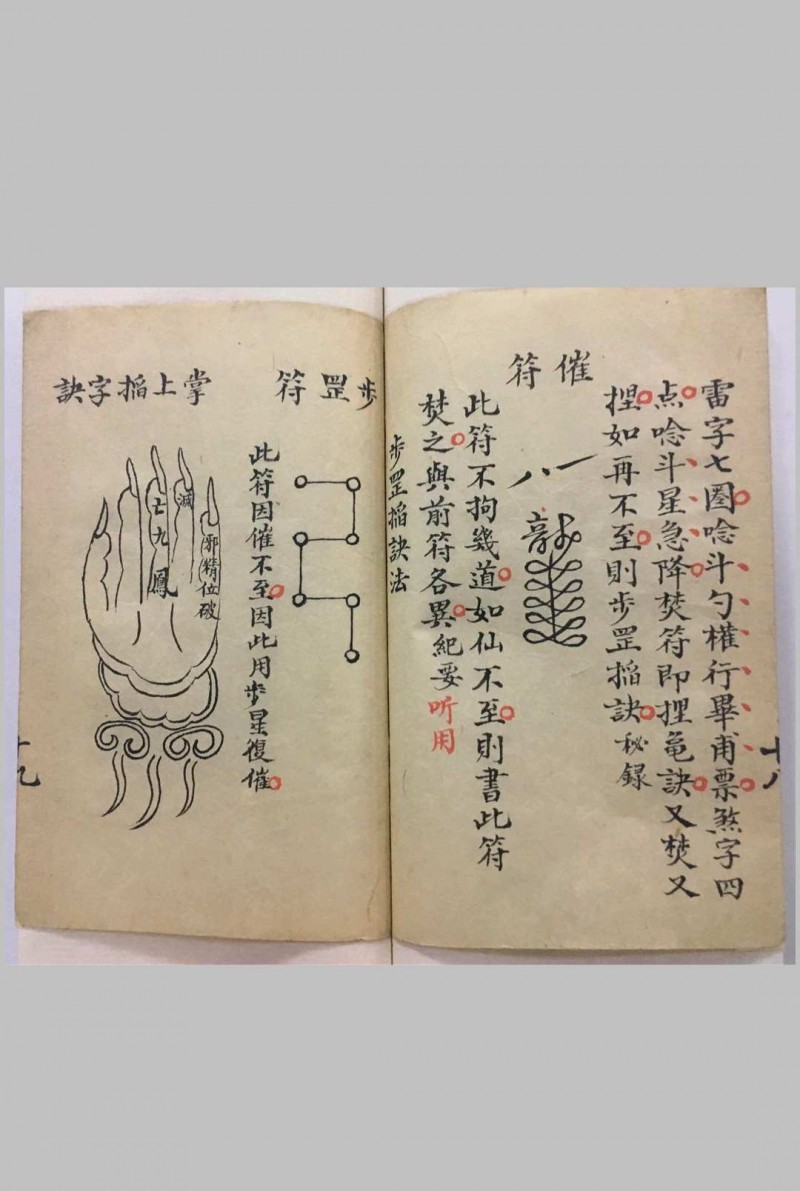 雷字七圈唸斗勺權行畢甫票煞字四
点唸斗星急降焚符即捏龟訣又焚又
捏如再不至則步罡搯訣秘録
催符
一八
此符不拘幾道如仙不至則書此符
焚之與前符各異紀要听用
十八
步罡搯訣法
步罡符
此符因催不至因此用步星復催
掌上搯字訣
邪精位破
滅
亡九鳳
十九